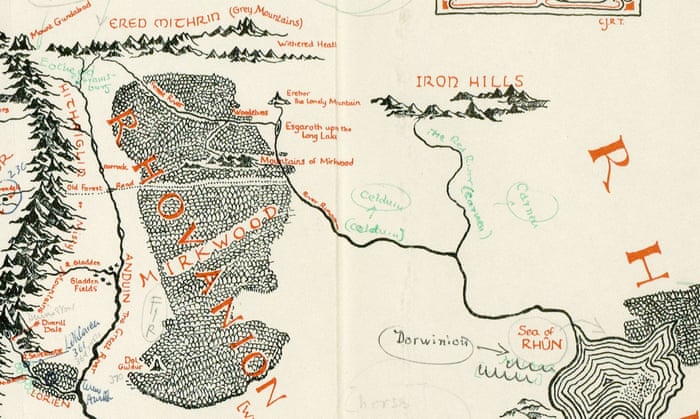 C.J.R.T.
Mount Gundabad
ERED MITHRIN (Grey Mountains)
Withered Heath
IRON HILLS
HITHAIGLIN
Forest River
Woodelves
Erebor
The Lonely Mountain
Esgaroth upon the
Long Lake
Mountains of Mirkwood
The Red River (Carnen)
Carnen
Carrock
Old Forest Road
River Running
Celduin
(Celduin)
RHOVANION
MIRKWOOD
R
H
Misty Mountains
R. Gladden
Gladden
Fields
ANDUIN The Great River
Dimrill
Dale
FIR
Dol
Guldur
LORIEN
Dorwinion
Sea of
RHÛN
horse